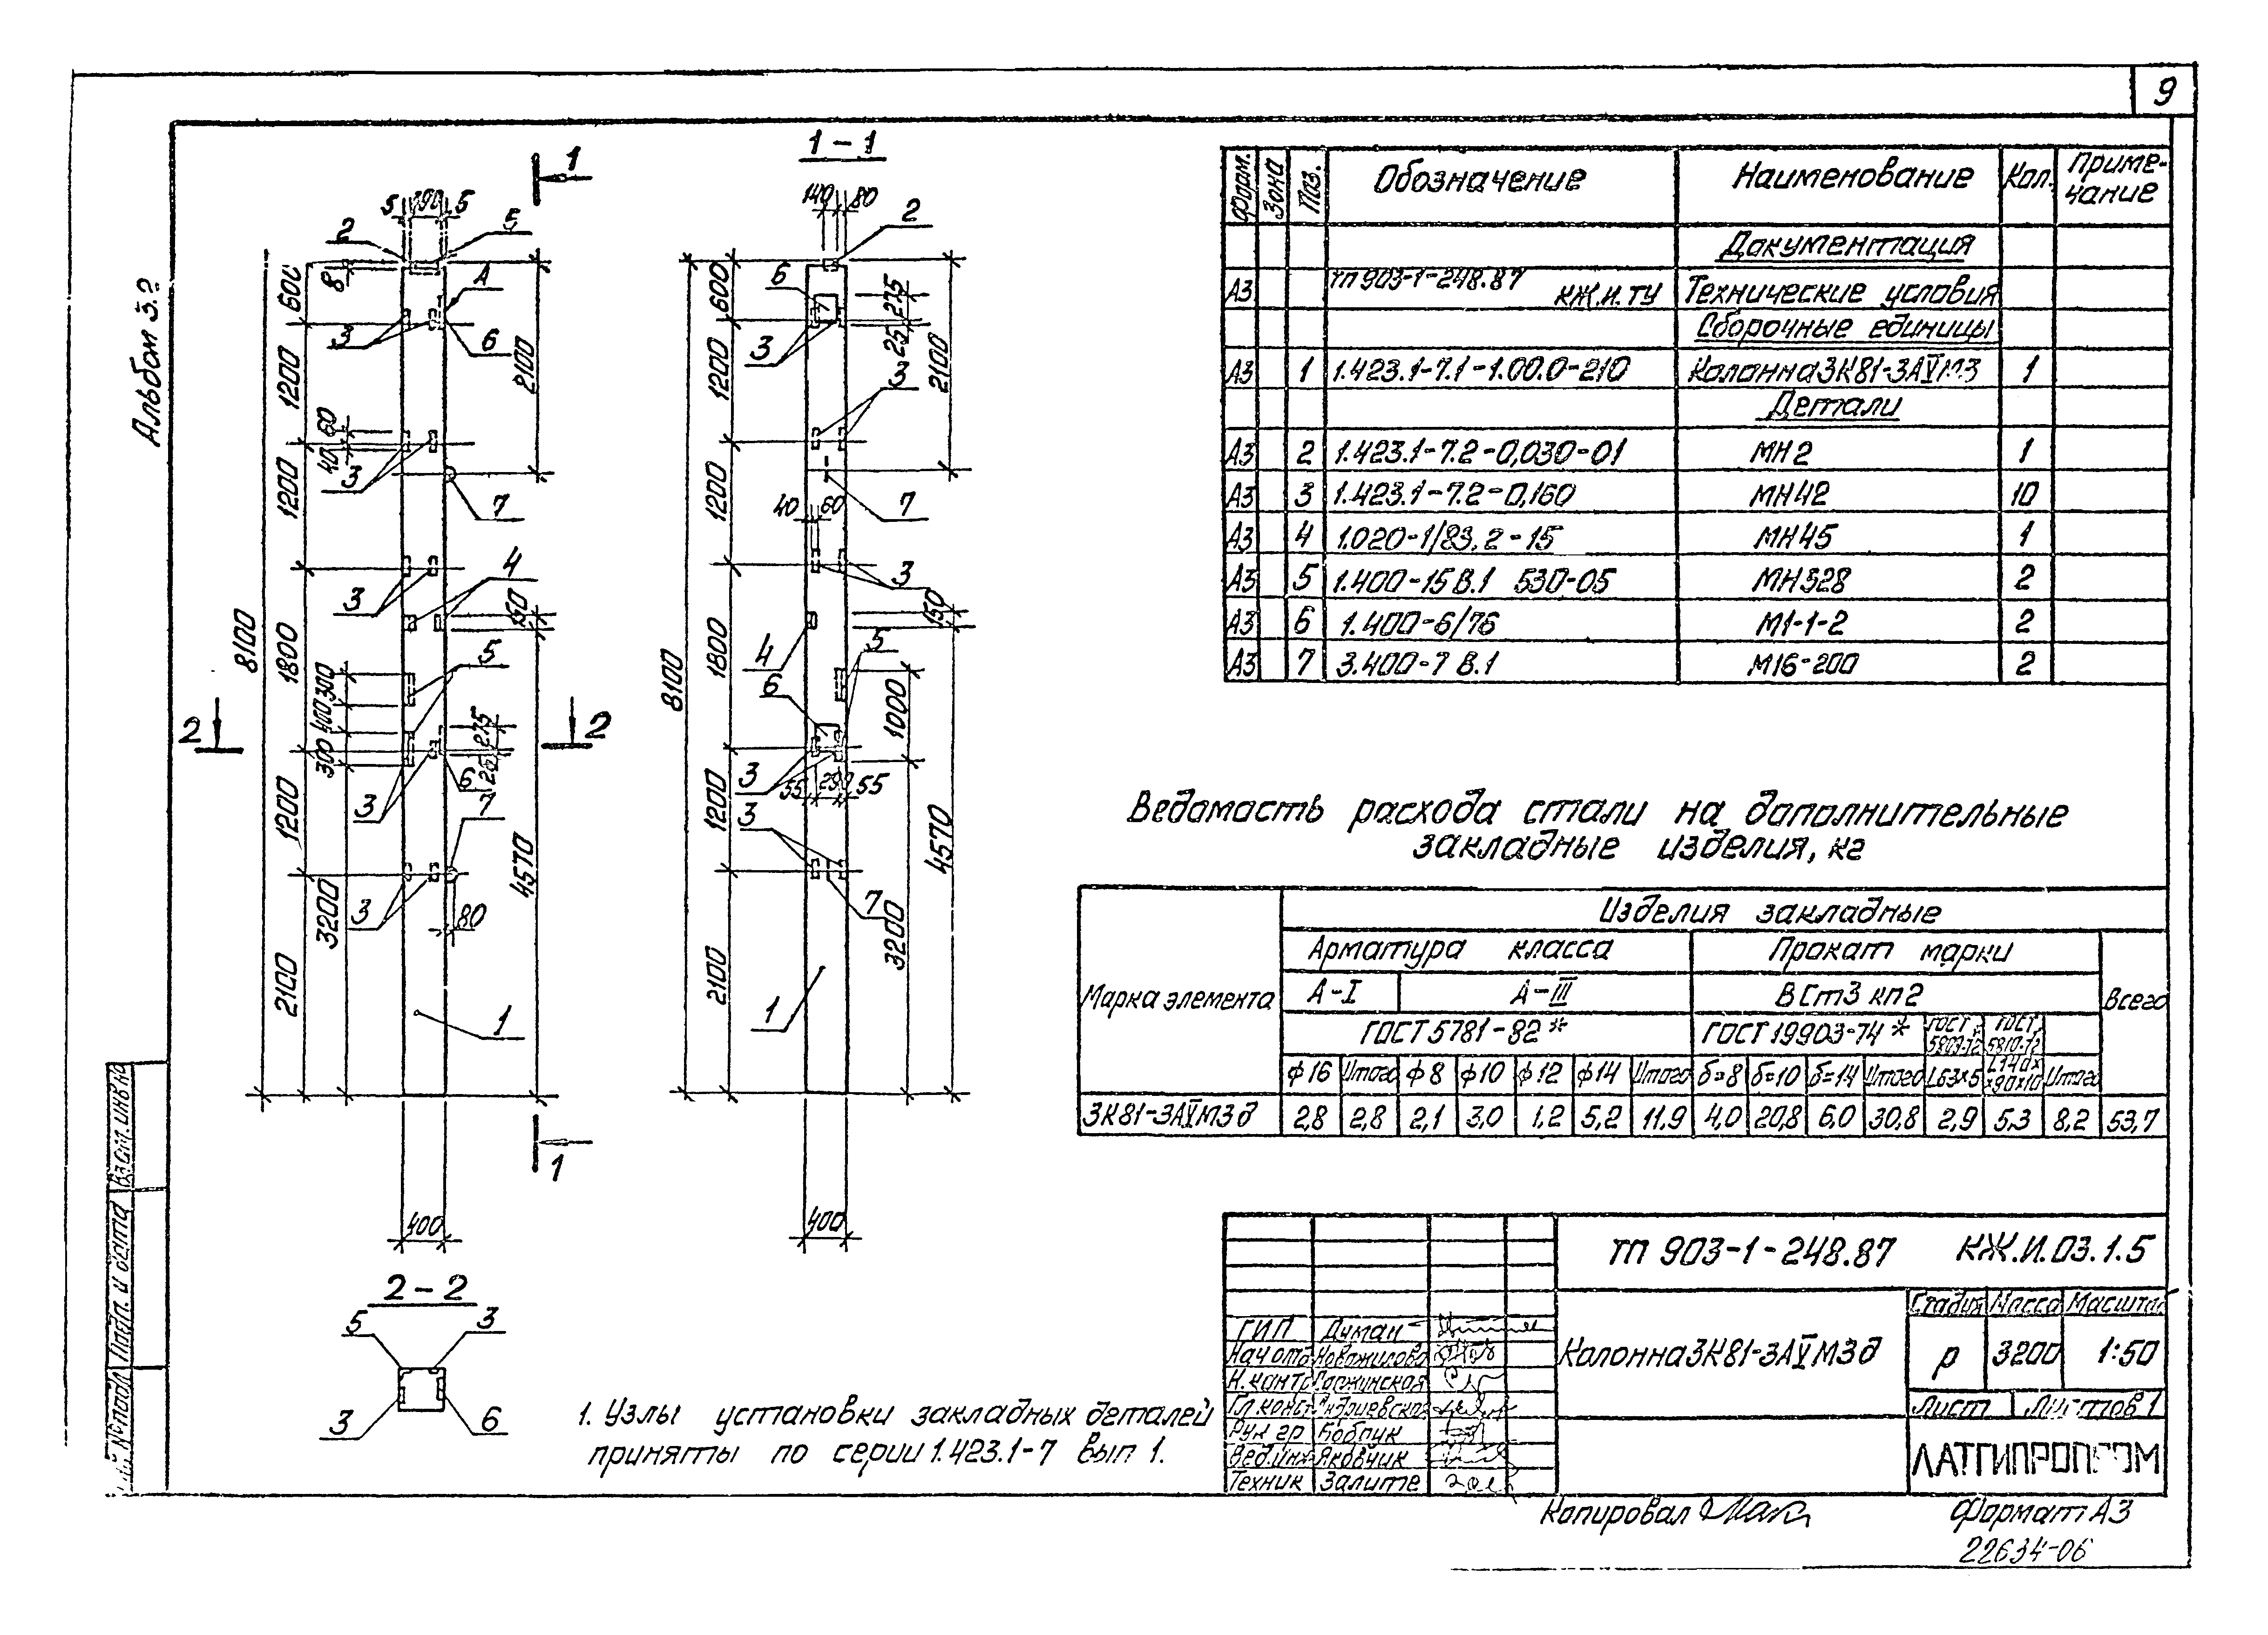 9
Альбом 5.2
1
1-1
5 390 5
2
5
А
600
8
3
6
2100
1200
60
40
3
1200
7
3
4
150
8100
1800
5
300
400
300
2
2
275
25
6
3
7
1200
4570
3200
3
80
2100
1
1
400
140 80
2
6
600
275
25
3
2100
1200
3
1200
7
40 60
3
150
4
5
8100
1800
6
1000
3
55 290 55
3
1200
4570
7
3200
2100
1
400
2-2
5 3
3 6
1. Узлы установки закладных деталей
приняты по серии 1.423.1-7 вып 1.
Форм. Зона Поз. Обозначение Наименование Кол. Приме-
чание
Документация
А3 ТП 903-1-248.87 КЖ.И.ТУ Технические условия
Сборочные единицы
А3 1 1.423.1-7.1-1.00.0-210 Колонна 3К81-3АⅣМ3 1
Детали
А3 2 1.423.1-7.2-0,030-01 МН2 1
А3 3 1.423.1-7.2-0,160 МН42 10
А3 4 1.020-1/83.2-15 МН45 1
А3 5 1.400-15 В.1 530-05 МН328 2
А3 6 1.400-6/76 М1-1-2 2
А3 7 3.400-7 В.1 М16-200 2
Ведомость расхода стали на дополнительные
закладные изделия, кг
Марка элемента
Изделия закладные
Арматура класса Прокат марки Всего
А-I А-III ВСт3 кп2
ГОСТ 5781-82* ГОСТ 19903-74* ГОСТ 8509-72 ГОСТ 8510-72
ϕ16 Итого ϕ8 ϕ10 ϕ12 ϕ14 Итого δ=8 δ=10 δ=14 Итого L63×5 L140××90×10 Итого
3К81-3АⅣМ3д 2,8 2,8 2,1 3,0 1,2 5,2 11,9 4,0 20,8 6,0 30,8 2,9 5,3 8,2 53,7
ТП 903-1-248.87 КЖ.И.03.1.5
Стадия Масса Масштаб
Колонна 3К81-3АⅣМ3д
р 3200 1:50
Лист Листов 1
ЛАТГИПРОПРОМ
ГИП Думан
Нач отд Новожилова
Н.контр Горжинская
Гл.конст Андриевская
Рук гр Бобрик
Вед.инж Яковчик
Техник Залите
Взам.инв №
Подп. и дата
Инв. № подл
Копировал
Формат А3
22634-06